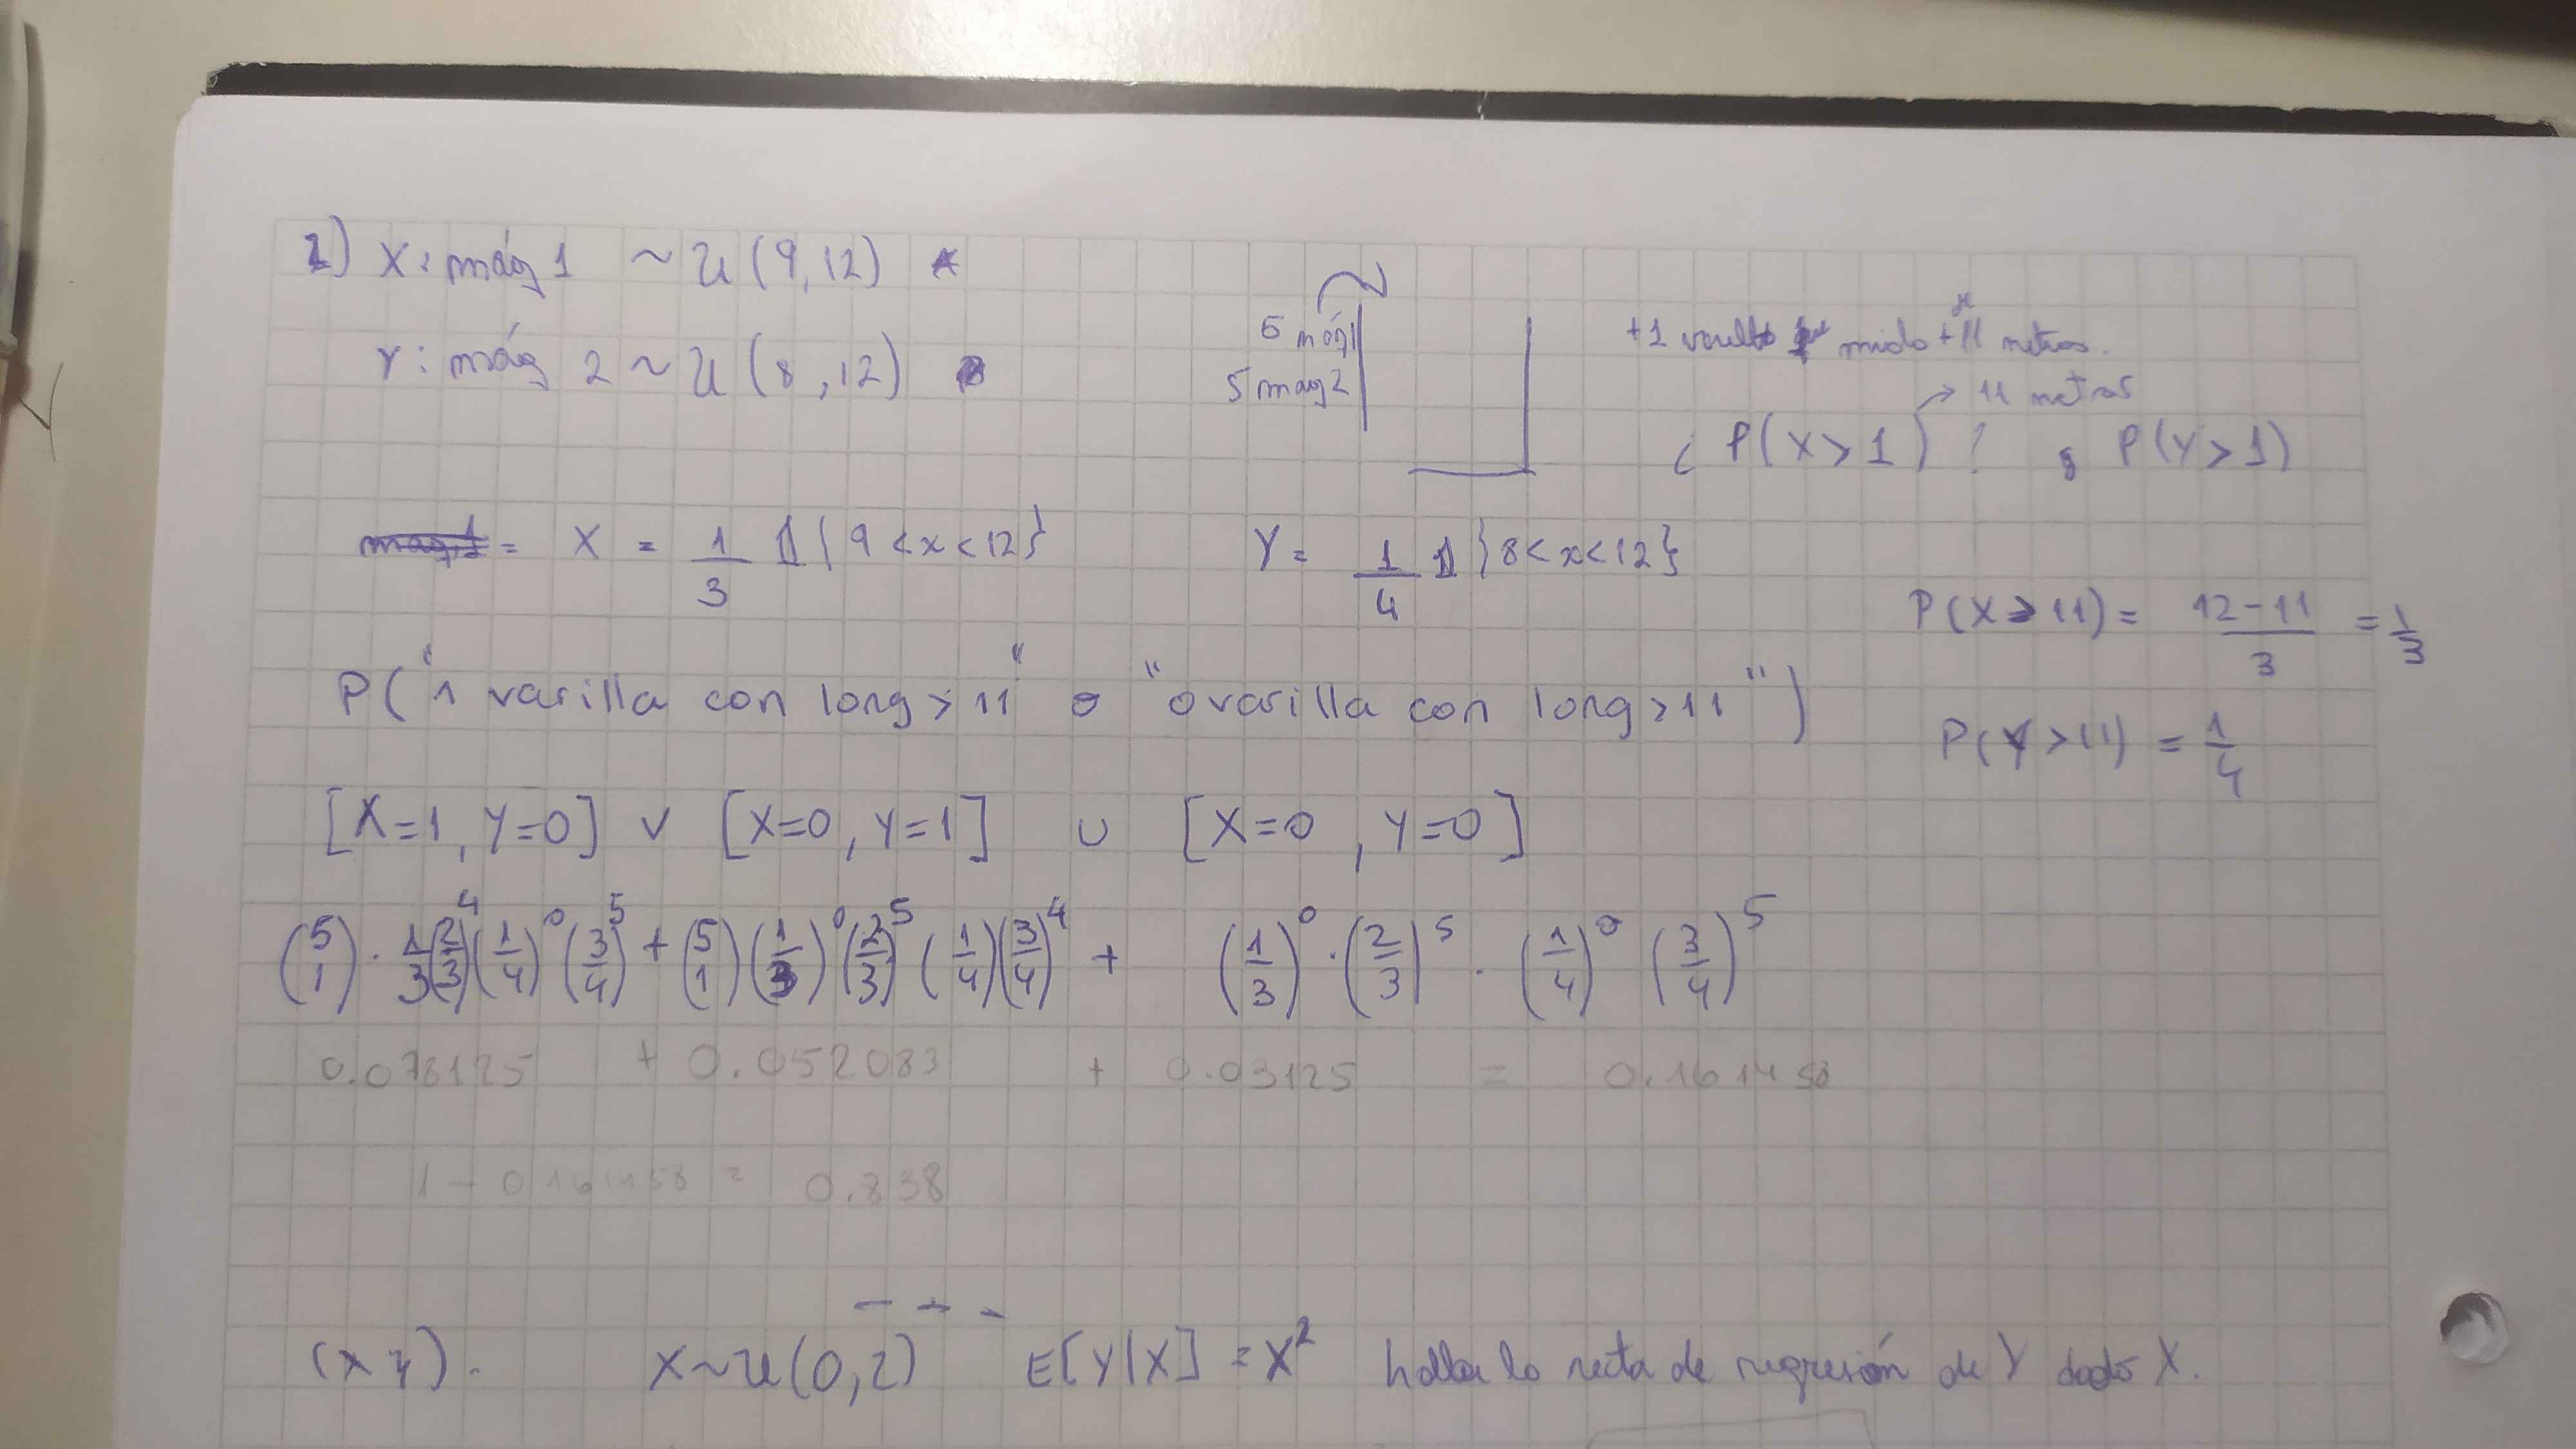 1) X: máq 1 ~ U (9,12)
Y: máq 2 ~ U (8,12)
5 máq1
5 maq2
+1 varilla mida +11 metros.
→ 11 metros
¿ P(X>1) ? P(Y>1)
= X = 1/3 𝟙{9<x<12}
Y = 1/4 𝟙{8<x<12}
P(X>11) = (12-11)/3 = 1/3
P("1 varilla con long>11" o "0 varilla con long>11")
P(Y>11) = 1/4
[X=1, Y=0] ∨ [X=0, Y=1] ∪ [X=0, Y=0]
(5 1)·1/3(2/3)^4(1/4)^0(3/4)^5 + (5 1)(1/3)^0(2/3)^5(1/4)(3/4)^4 + (1/3)^0·(2/3)^5·(1/4)^0(3/4)^5
0.078125 + 0.052083 + 0.03125 = 0.161458
1 - 0.161458 = 0.838
(X Y). X~U(0,2) E[Y|X] = X² hallar la recta de regresión de Y dado X.